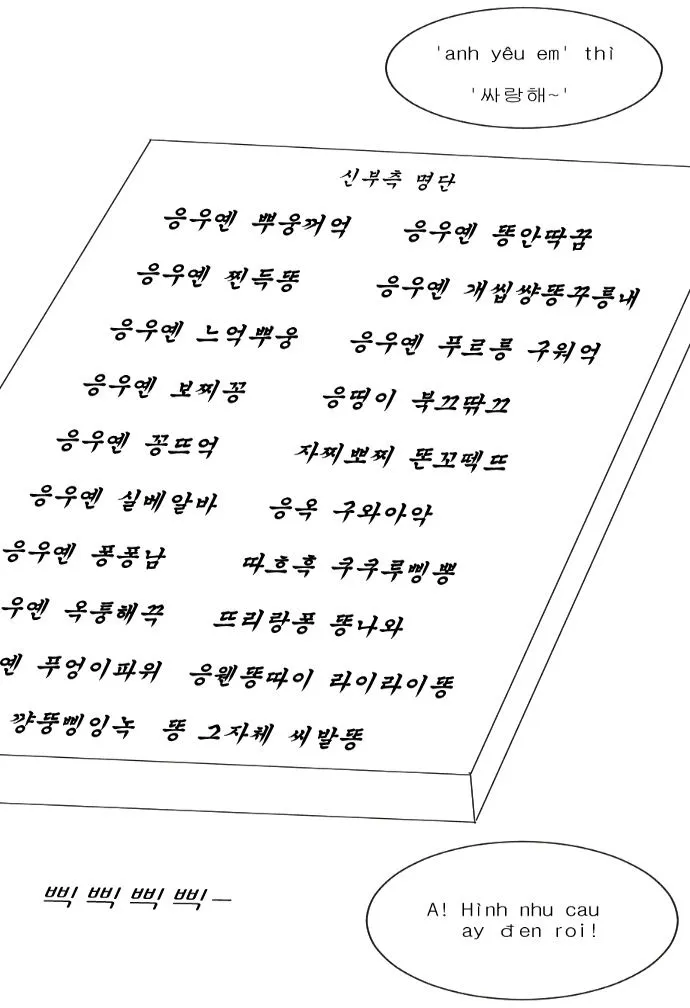 'anh yêu em' thì
'싸랑해~'
신부측 명단
응우옌 뿌웅꺼억 응우옌 똥안딱꿈
응우옌 찐득똥 응우옌 개씹썅똥꾸릉내
응우옌 느억뿌웅 응우옌 푸르릉 구워억
응우옌 보찌꽁 응띵이 북끄딲끄
응우옌 꽁뜨억 자찌뽀찌 똔꼬떽뜨
응우옌 실베알바 응옥 구와아악
응우옌 퐁퐁남 따흐흑 쿠쿠루삥뽕
우옌 옥퉁해끅 뜨리랑퐁 똥나와
옌 푸엉이파위 응웬똥따이 라이라이똥
꺙뚱삥잉녹 똥 그자체 씨발똥
삑 삑 삑 삑-
A! Hình nhu cau
ay đen roi!